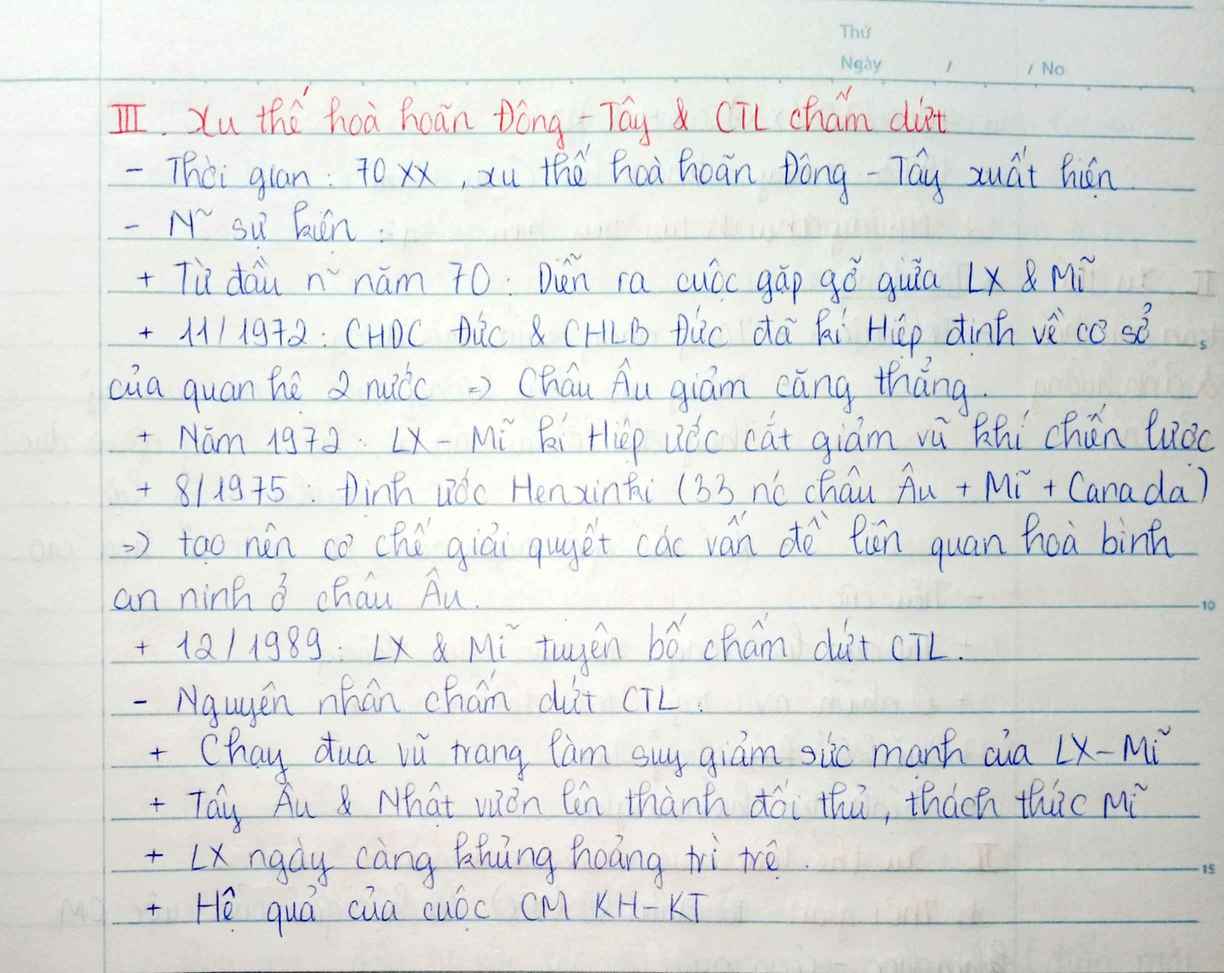 Thứ
Ngày / / No
III. Xu thế hoà hoãn Đông - Tây & CTL chấm dứt
- Thời gian: 70 XX, xu thế hoà hoãn Đông - Tây xuất hiện.
- N~ sự kiện:
+ Từ đầu n~ năm 70: Diễn ra cuộc gặp gỡ giữa LX & Mĩ
+ 11/1972: CHDC Đức & CHLB Đức đã kí Hiệp định về cơ sở
5
của quan hệ 2 nước => Châu Âu giảm căng thẳng.
+ Năm 1972: LX - Mĩ kí Hiệp ước cắt giảm vũ khí chiến lược
+ 8/1975: Định ước Henxinki (33 nc châu Âu + Mĩ + Canada)
=> tạo nên cơ chế giải quyết các vấn đề liên quan hoà bình
an ninh ở châu Âu.
10
+ 12/1989: LX & Mĩ tuyên bố chấm dứt CTL.
- Nguyên nhân chấm dứt CTL:
+ Chạy đua vũ trang làm suy giảm sức mạnh của LX-Mĩ
+ Tây Âu & Nhật vươn lên thành đối thủ, thách thức Mĩ
+ LX ngày càng khủng hoảng trì trệ.
15
+ Hệ quả của cuộc CM KH-KT